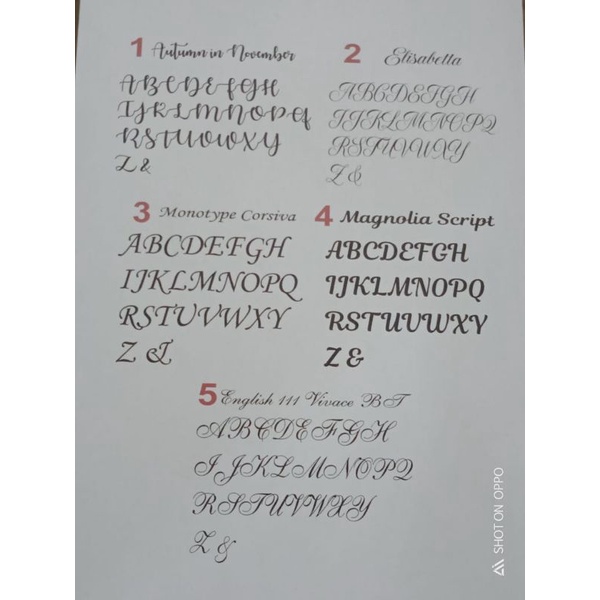 1 Autumn in November
ABCDEFGH
IJKLMNOPQ
RSTUVWXY
Z &
2 Elisabetta
ABCDEFGH
IJKLMNOPQ
RSTUVWXY
Z &
3 Monotype Corsiva
ABCDEFGH
IJKLMNOPQ
RSTUVWXY
Z &
4 Magnolia Script
ABCDEFGH
IJKLMNOPQ
RSTUVWXY
Z &
5 English 111 Vivace BT
ABCDEFGH
IJKLMNOPQ
RSTUVWXY
Z &
SHOT ON OPPO